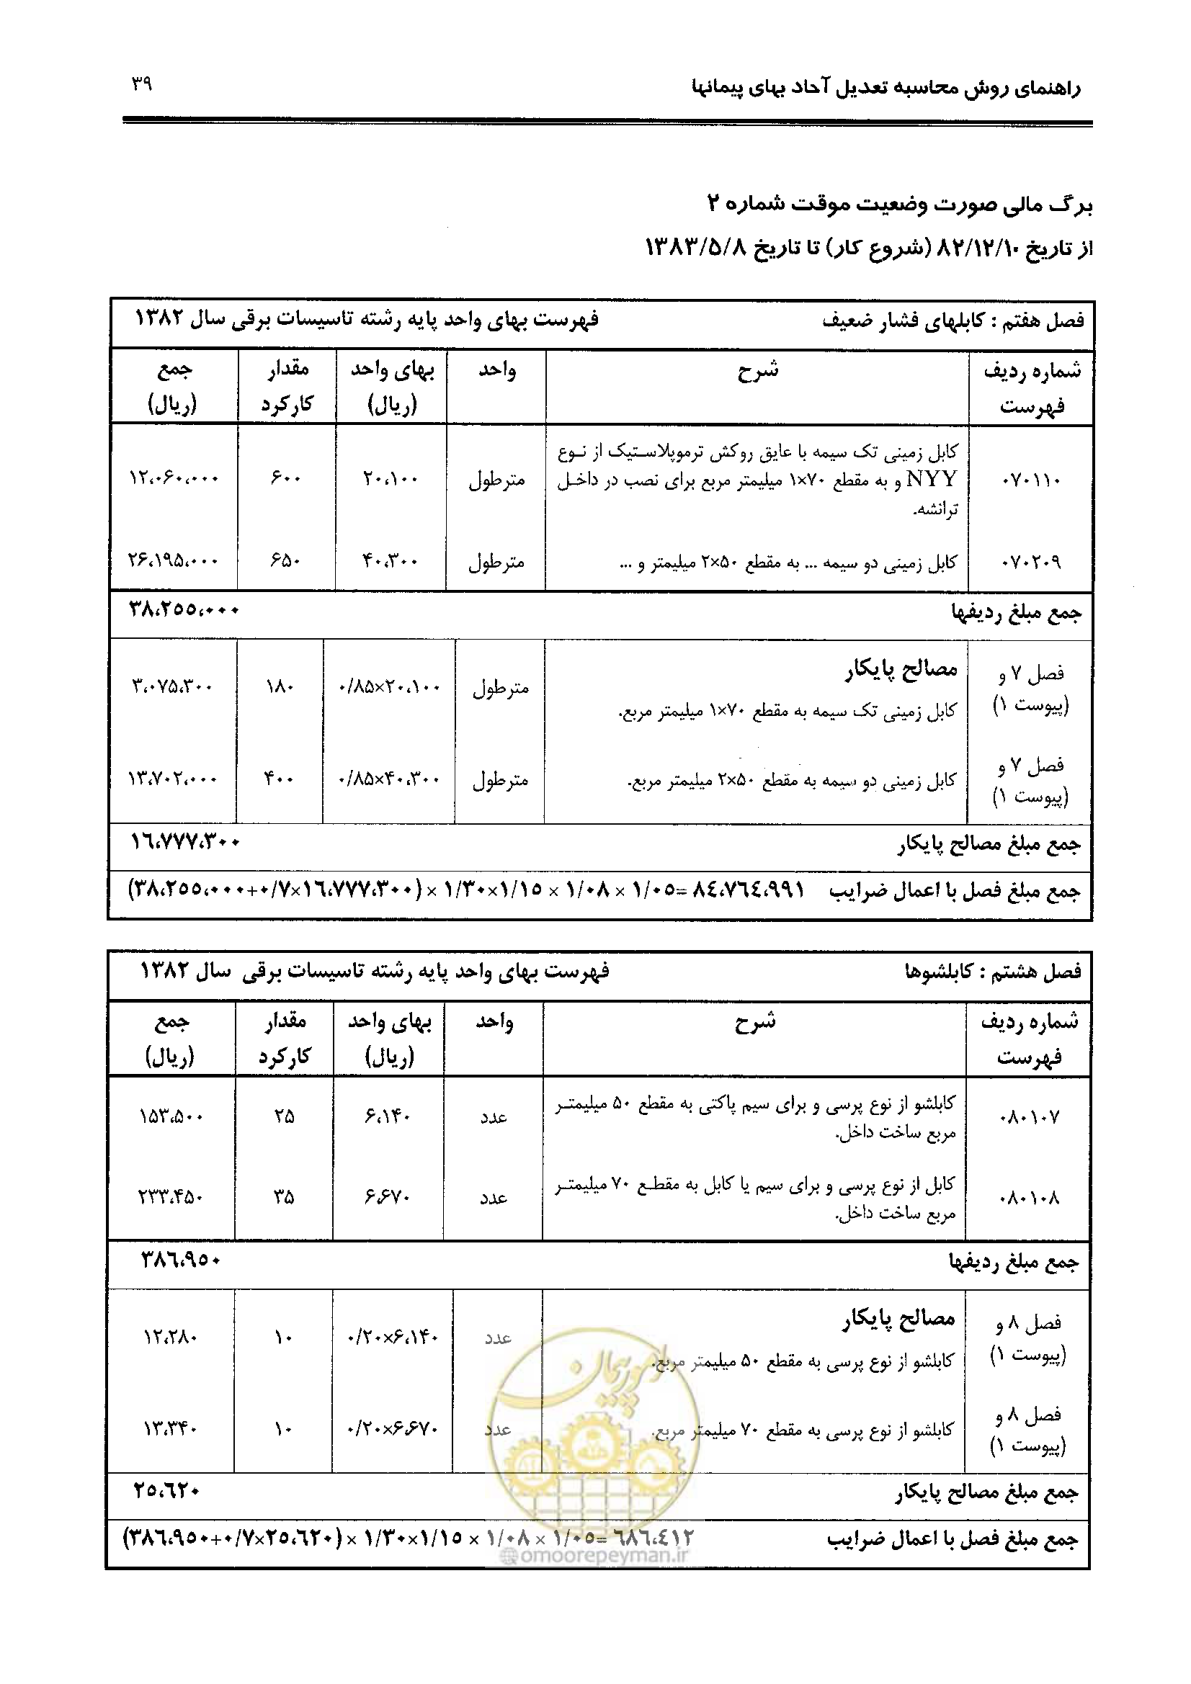 راهنمای روش محاسبه تعدیل آحاد بهای پیمانها ۳۹
برگ مالی صورت وضعیت موقت شماره ۲
از تاریخ ۸۲/۱۲/۱۰ (شروع کار) تا تاریخ ۱۳۸۳/۵/۸
فصل هفتم : کابلهای فشار ضعیف فهرست بهای واحد پایه رشته تاسیسات برقی سال ۱۳۸۲
شماره ردیف شرح واحد بهای واحد مقدار جمع
فهرست (ریال) کارکرد (ریال)
کابل زمینی تک سیمه با عایق روکش ترموپلاستیک از نوع
۰۷۰۱۱۰ NYY و به مقطع ۱×۷۰ میلیمتر مربع برای نصب در داخل مترطول ۲۰،۱۰۰ ۶۰۰ ۱۲،۰۶۰،۰۰۰
ترانشه.
۰۷۰۲۰۹ کابل زمینی دو سیمه ... به مقطع ۲×۵۰ میلیمتر و ... مترطول ۴۰،۳۰۰ ۶۵۰ ۲۶،۱۹۵،۰۰۰
جمع مبلغ ردیفها ۳۸،۲۵۵،۰۰۰
فصل ۷ و مصالح پایکار مترطول ۰/۸۵×۲۰،۱۰۰ ۱۸۰ ۳،۰۷۵،۳۰۰
(پیوست ۱) کابل زمینی تک سیمه به مقطع ۱×۷۰ میلیمتر مربع.
فصل ۷ و کابل زمینی دو سیمه به مقطع ۲×۵۰ میلیمتر مربع. مترطول ۰/۸۵×۴۰،۳۰۰ ۴۰۰ ۱۳،۷۰۲،۰۰۰
(پیوست ۱)
جمع مبلغ مصالح پایکار ۱٦،۷۷۷،۳۰۰
جمع مبلغ فصل با اعمال ضرایب (۳۸،۲۵۵،۰۰۰+۰/۷×۱٦،۷۷۷،۳۰۰) × ۱/۳۰×۱/۱۵ × ۱/۰۸ × ۱/۰۵= ۸٤،۷٦٤،۹۹۱
فصل هشتم : کابلشوها فهرست بهای واحد پایه رشته تاسیسات برقی سال ۱۳۸۲
شماره ردیف شرح واحد بهای واحد مقدار جمع
فهرست (ریال) کارکرد (ریال)
۰۸۰۱۰۷ کابلشو از نوع پرسی و برای سیم پاکتی به مقطع ۵۰ میلیمتر عدد ۶،۱۴۰ ۲۵ ۱۵۳،۵۰۰
مربع ساخت داخل.
۰۸۰۱۰۸ کابل از نوع پرسی و برای سیم یا کابل به مقطع ۷۰ میلیمتر عدد ۶،۶۷۰ ۳۵ ۲۳۳،۴۵۰
مربع ساخت داخل.
جمع مبلغ ردیفها ۳۸٦،۹۵۰
فصل ۸ و مصالح پایکار عدد ۰/۲۰×۶،۱۴۰ ۱۰ ۱۲،۲۸۰
(پیوست ۱) کابلشو از نوع پرسی به مقطع ۵۰ میلیمتر مربع.
فصل ۸ و کابلشو از نوع پرسی به مقطع ۷۰ میلیمتر مربع. عدد ۰/۲۰×۶،۶۷۰ ۱۰ ۱۳،۳۴۰
(پیوست ۱)
جمع مبلغ مصالح پایکار ۲۵،٦۲۰
جمع مبلغ فصل با اعمال ضرایب (۳۸٦،۹۵۰+۰/۷×۲۵،٦۲۰) × ۱/۳۰×۱/۱۵ × ۱/۰۸ × ۱/۰۵= ٦۸٦،٤۱۲
امور پیمان
@omoorepeyman.ir